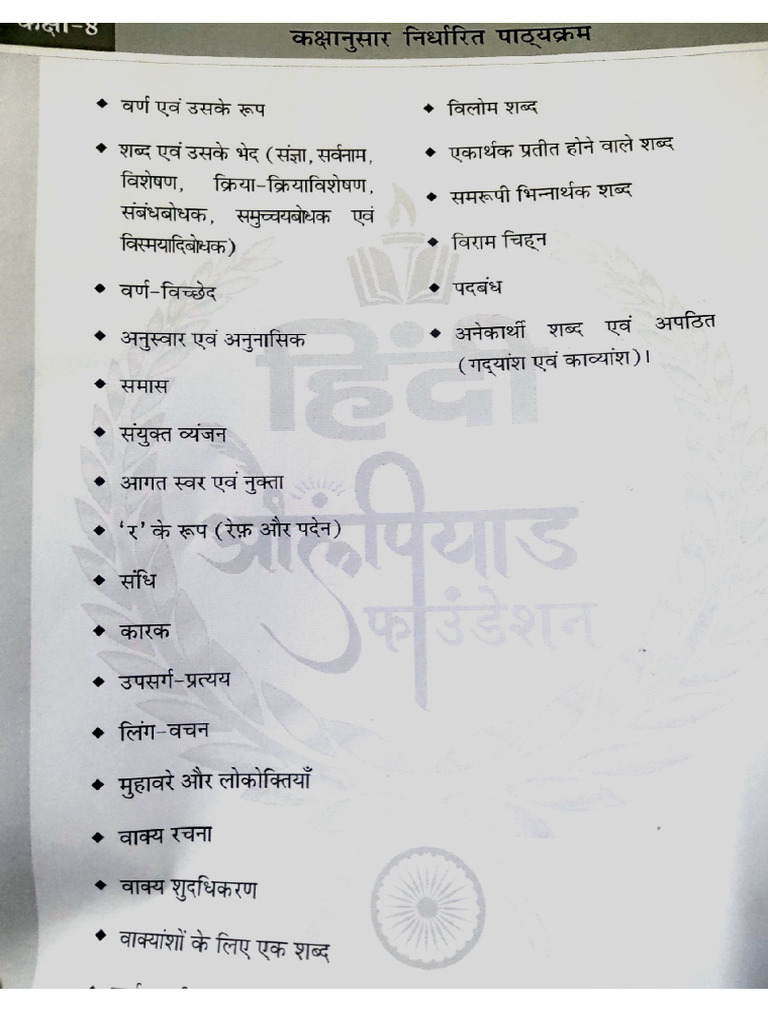 कक्षा-8
कक्षानुसार निर्धारित पाठ्यक्रम
◆ वर्ण एवं उसके रूप
◆ शब्द एवं उसके भेद (संज्ञा, सर्वनाम,
विशेषण, क्रिया-क्रियाविशेषण,
संबंधबोधक, समुच्चयबोधक एवं
विस्मयादिबोधक)
◆ वर्ण-विच्छेद
◆ अनुस्वार एवं अनुनासिक
◆ समास
◆ संयुक्त व्यंजन
◆ आगत स्वर एवं नुक्ता
◆ ‘र’ के रूप (रेफ़ और पदेन)
◆ संधि
◆ कारक
◆ उपसर्ग-प्रत्यय
◆ लिंग-वचन
◆ मुहावरे और लोकोक्तियाँ
◆ वाक्य रचना
◆ वाक्य शुद्धिकरण
◆ वाक्यांशों के लिए एक शब्द
◆ विलोम शब्द
◆ एकार्थक प्रतीत होने वाले शब्द
◆ समरूपी भिन्नार्थक शब्द
◆ विराम चिह्न
◆ पदबंध
◆ अनेकार्थी शब्द एवं अपठित
(गद्यांश एवं काव्यांश)।
हिंदी
ओलंपियाड
फाउंडेशन